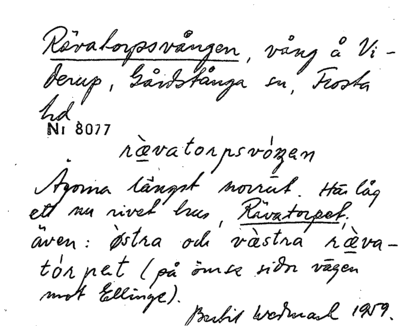 Rävatorpsvången, vång å Vi-
derup, Gårdstånga sn, Frosta
hd
Nr 8077
rὲvatorpsvóŋen
Ägorna längst norrut. Här låg
ett nu rivet hus, Rävatorpet,
även: östra och västra rὲva-
tórpet (på ömse sidor vägen
mot Ellinge).
Bertil 1959.